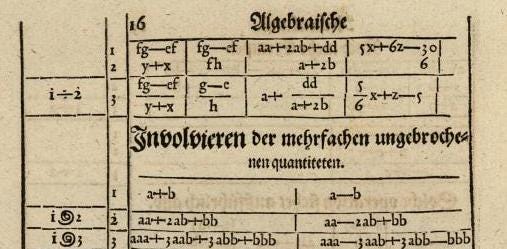 16 Algebraische
1 fg—ef fg—ef aa+2ab+dd 5x+6z—30
2 y+x fh a+2b 6
i÷2 3 fg—ef / y+x g—e / h a+ dd / a+2b 5/6 x+z—5
Involvieren der mehrfachen ungebroche-
nen quantiteten.
1 a+b a—b
i 2 2 aa+2ab+bb aa—2ab+bb
i 3 3 aaa+3aab+3abb+bbb aaa—3aab+3abb—bbb